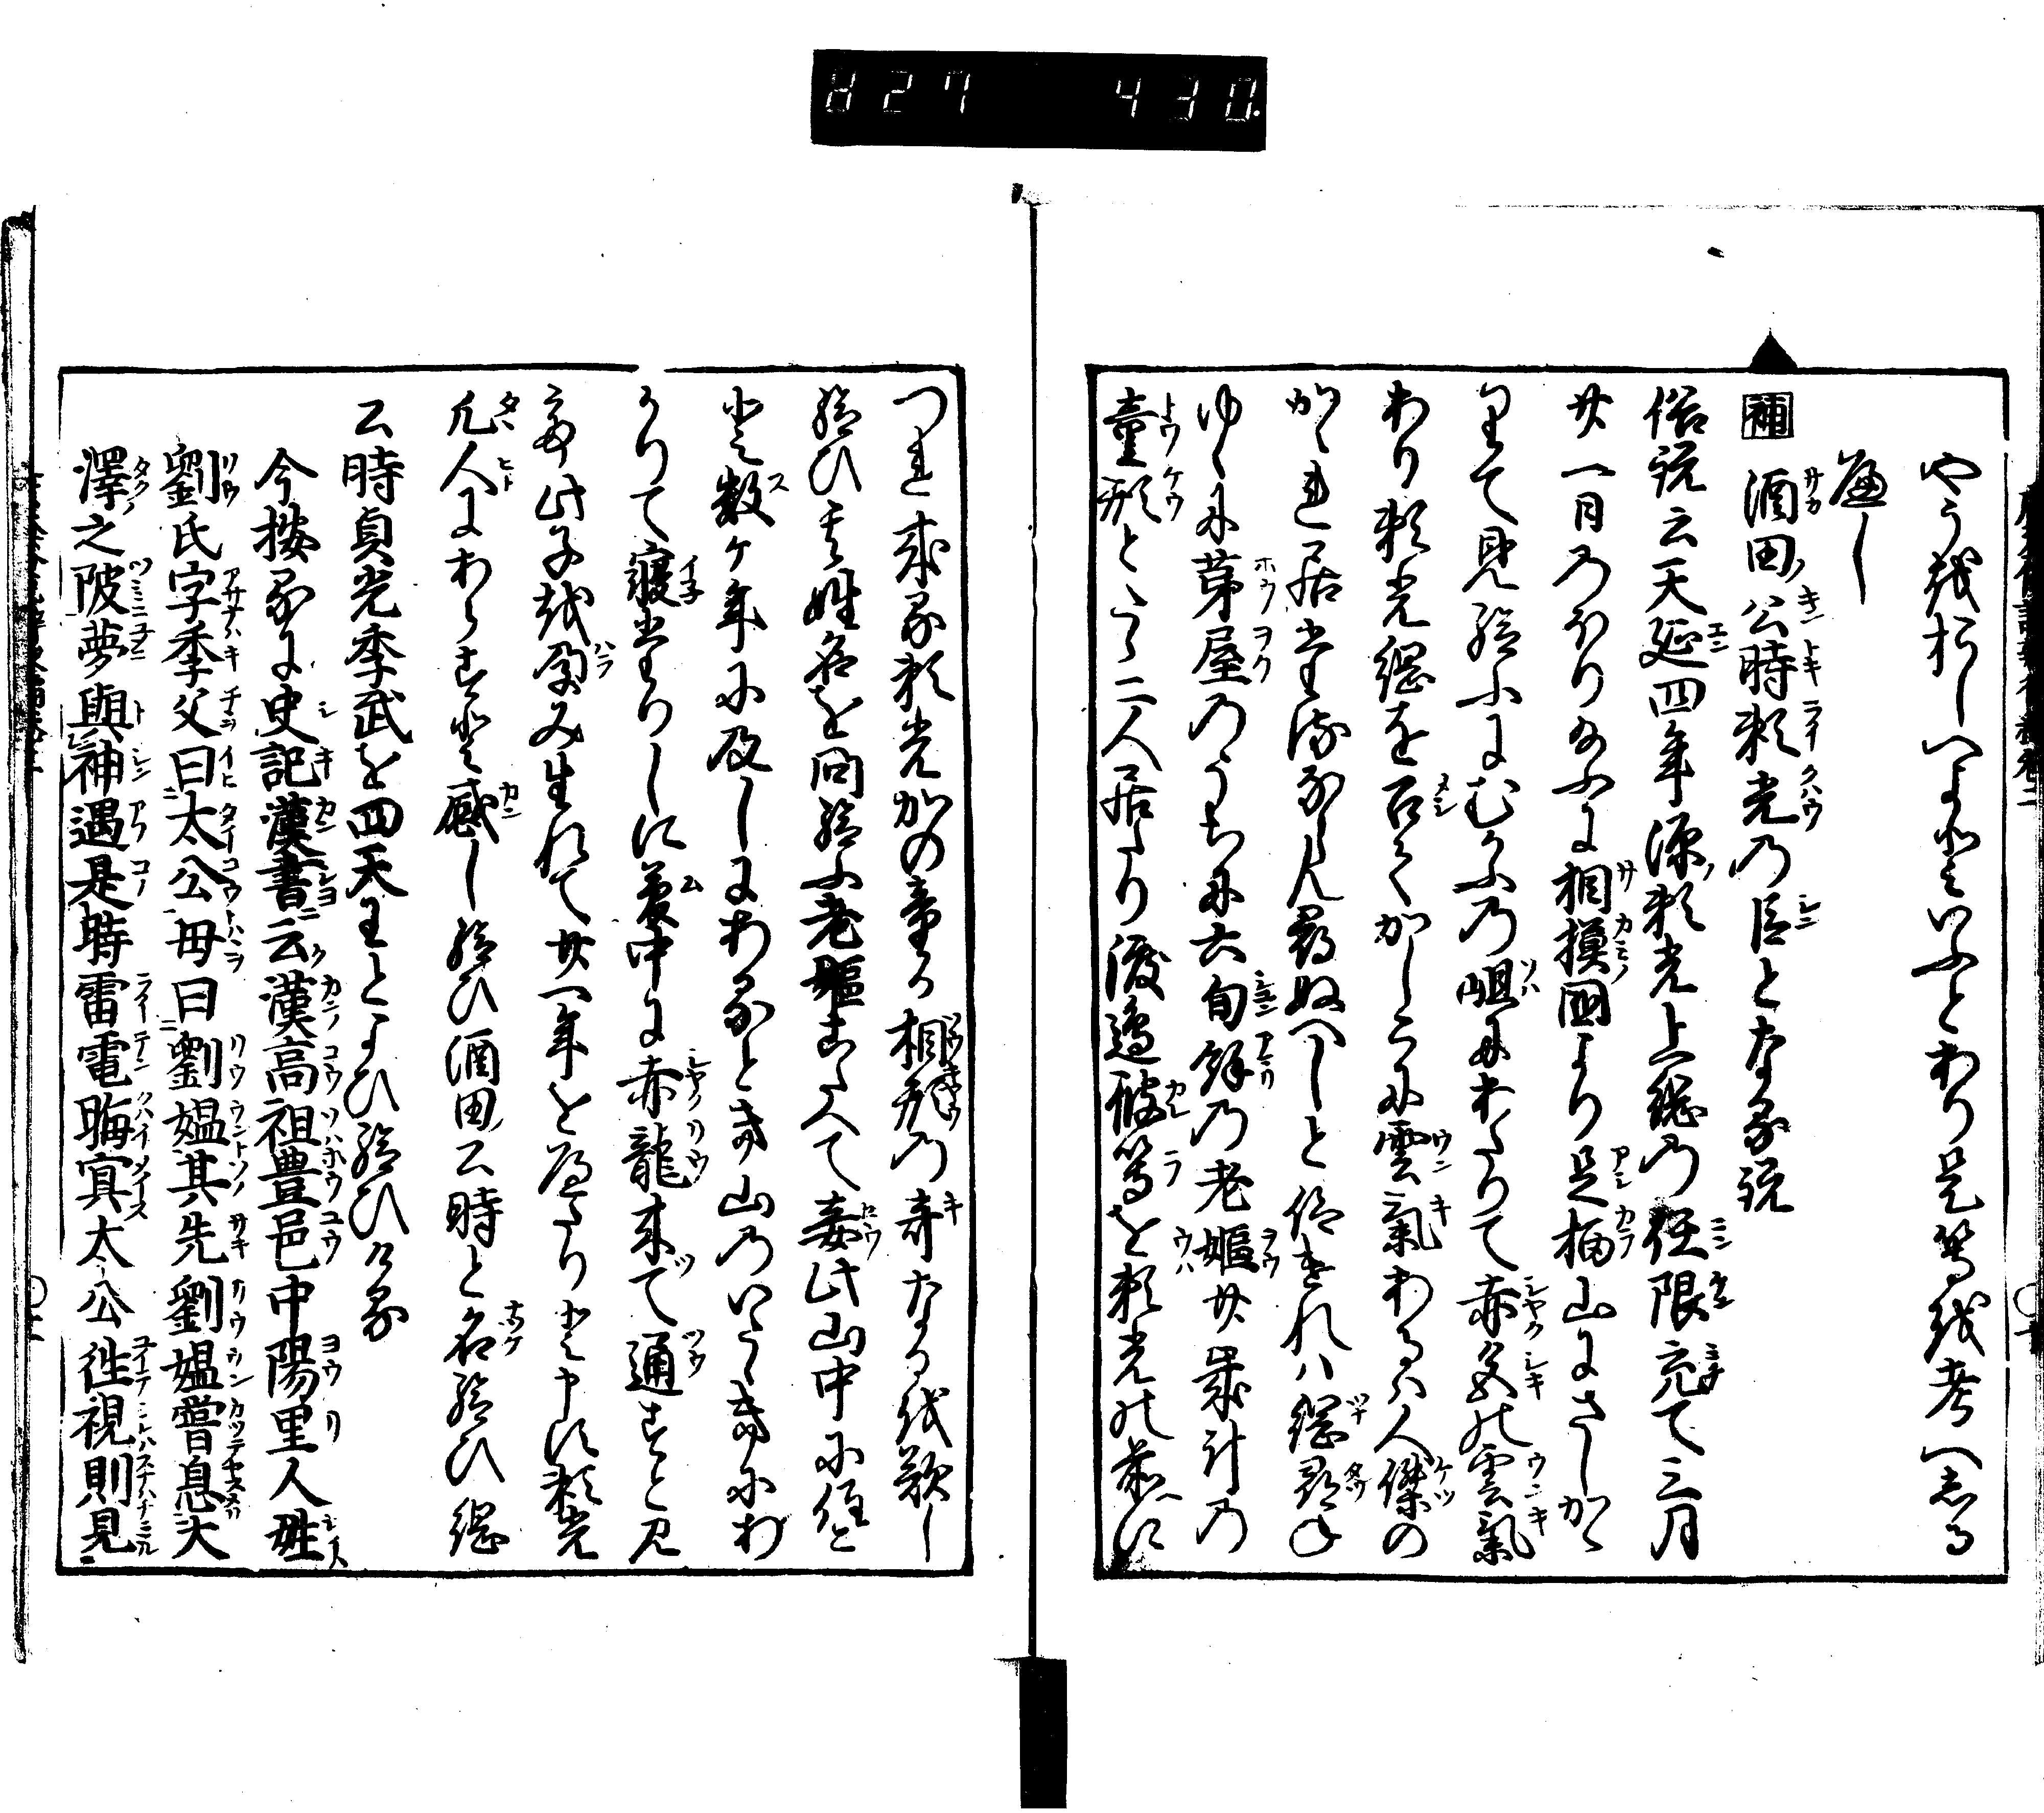 827 430
やうをおしへよといふとあり是等を考へしる
べし
補 酒田公時頼光の臣となる説
俗説云天延四年源頼光上総の任限充て三月
廿一日のほり給ふに相模国より足柄山にさしかゝ
りて見給ふにむかふの岨にあたりて赤色の雲気
あり頼光綱を召てかしこに雲気あるは人傑の
かくれ居たるならん尋ぬべしと仰ければ綱尋ね
ゆくに茅屋のうちに六旬餘の老嫗廿歳計の
童形とたゝ二人居たり渡邉彼等を頼光の前に
つれ来る頼光かの童か相形の奇なるを歎し
給ひ其姓名を問給ふ老嫗こたへて妾此山中に住こ
と数ケ年に及しにあるとき山のいたゝきにわ
かりて寝たりしに夢中に赤龍来て通すと見
て此子を孕み生れて廿一年を歴たりと申に頼光
凡人にあらすと感し給ひ酒田公時と名給ひ綱
公時貞光季武を四天王とよひ給ひける
今按るに史記漢書云漢高祖豊邑中陽里人姓
劉氏字季父曰太公母曰劉媼其先劉媼嘗息大
澤之陂夢與神遇是時雷電晦冥太公往視則見